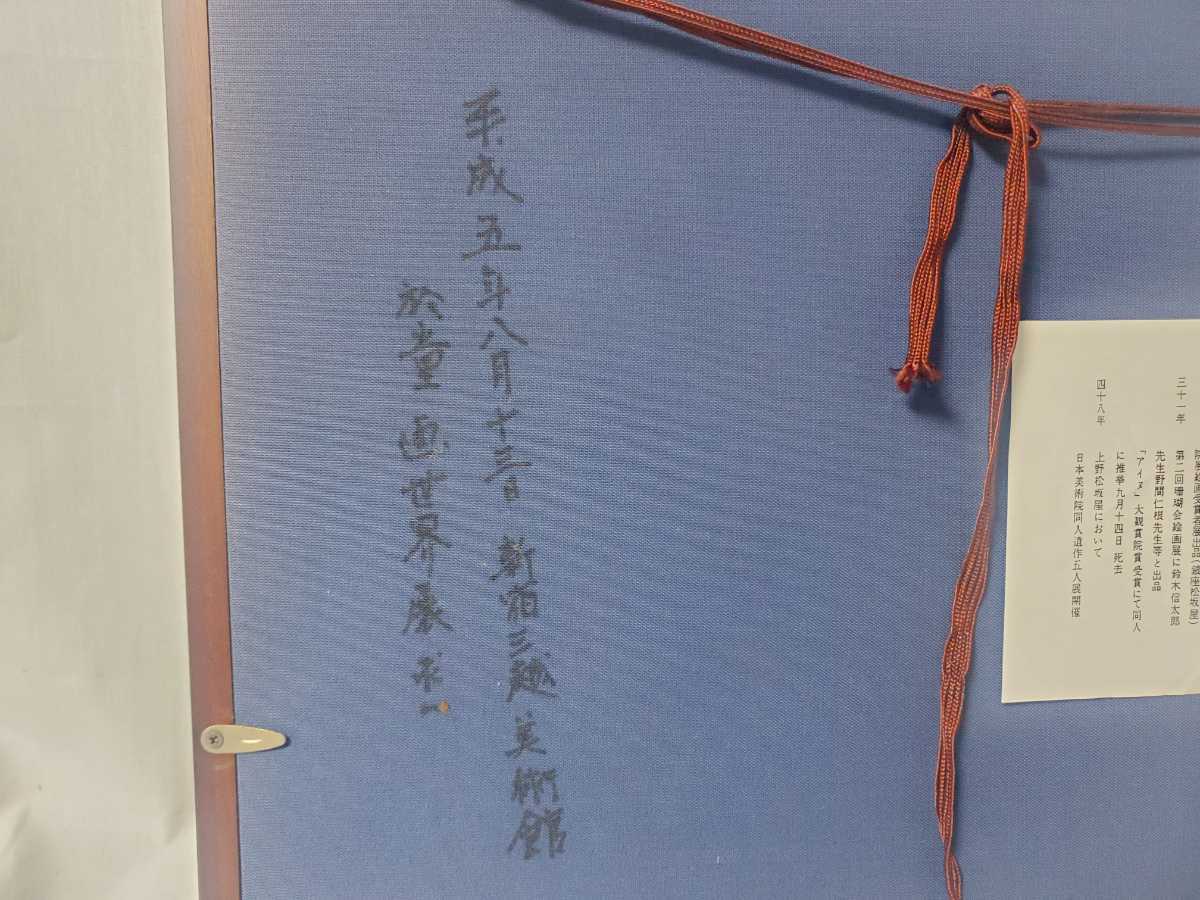 平成五年八月十三日 新宿三越美術館
於童画世界展 求一
三十一年
院展絵画受賞者展出品(銀座松坂屋)
第二回珊瑚会絵画展に鈴木信太郎
先生野間仁根先生等と出品
四十八年
「アイヌ」大観賞院賞受賞にて同人
に推挙九月十四日 死去
上野松坂屋において
日本美術院同人遺作五人展開催